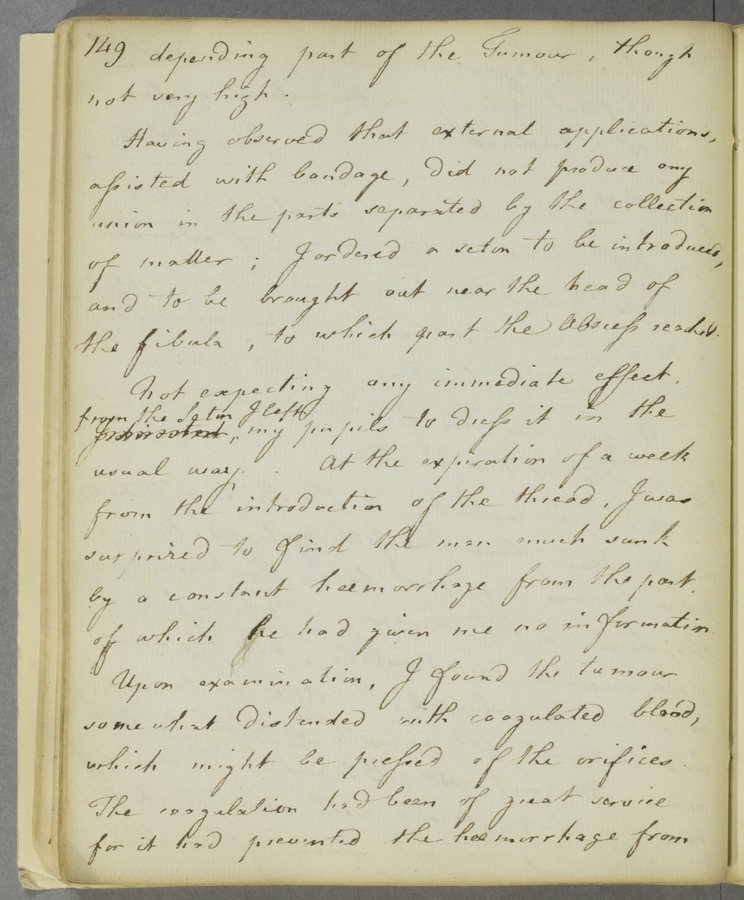 149 depending part of the Tumour, though
not very high.
Having observed that external applications,
assisted with bandage, did not produce any
union in the parts separated by the collection
of matter; I ordered a seton to be introduced,
and to be brought out near the head of
the fibula, to which part the Abscess reached.
Not expecting any immediate effect.
from the Seton I left
my pupils to dress it in the
usual way. At the expiration of a week
from the introduction of the thread, I was
surprized to find the man much sunk
by a constant haemorrhage from the part,
of which he had given me no information
Upon examination, I found the tumour
somewhat distended with coagulated blood,
which might be pressed of the orifices.
The coagulation had been of great service
for it had prevented the haemorrhage from